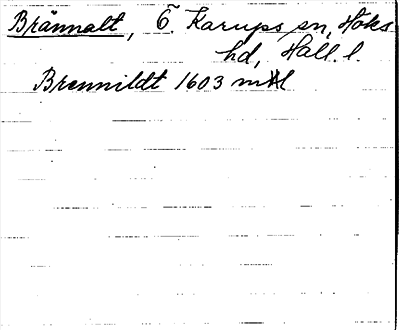 Brännalt, Ö. Karups sn, Höks
hd, Hall. l.
Brennildt 1603 mtl